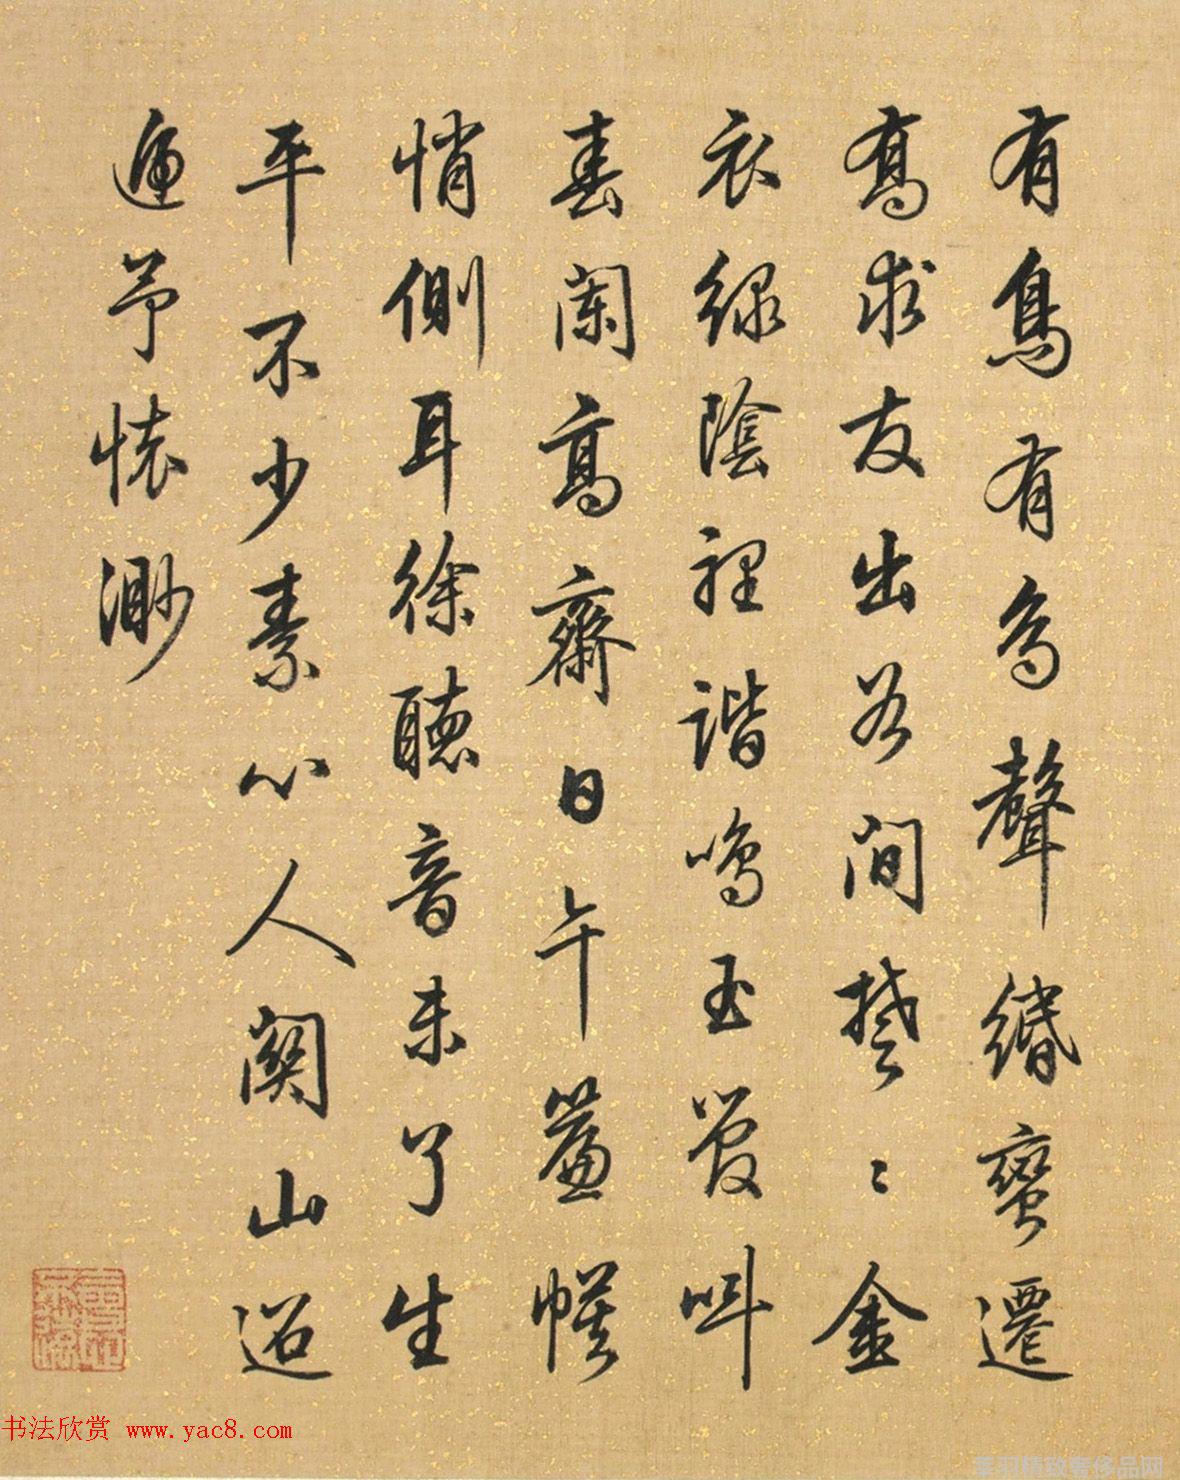 有鳥有鳥聲緡蠻遷
喬求友出谷間楚〻金
衣綠陰裡諧鳴玉管叫
春闌高齋日午簾幙
悄側耳徐聽音未了生
平不少素心人關山迢
遞予懷渺
书法欣赏 www.yac8.com